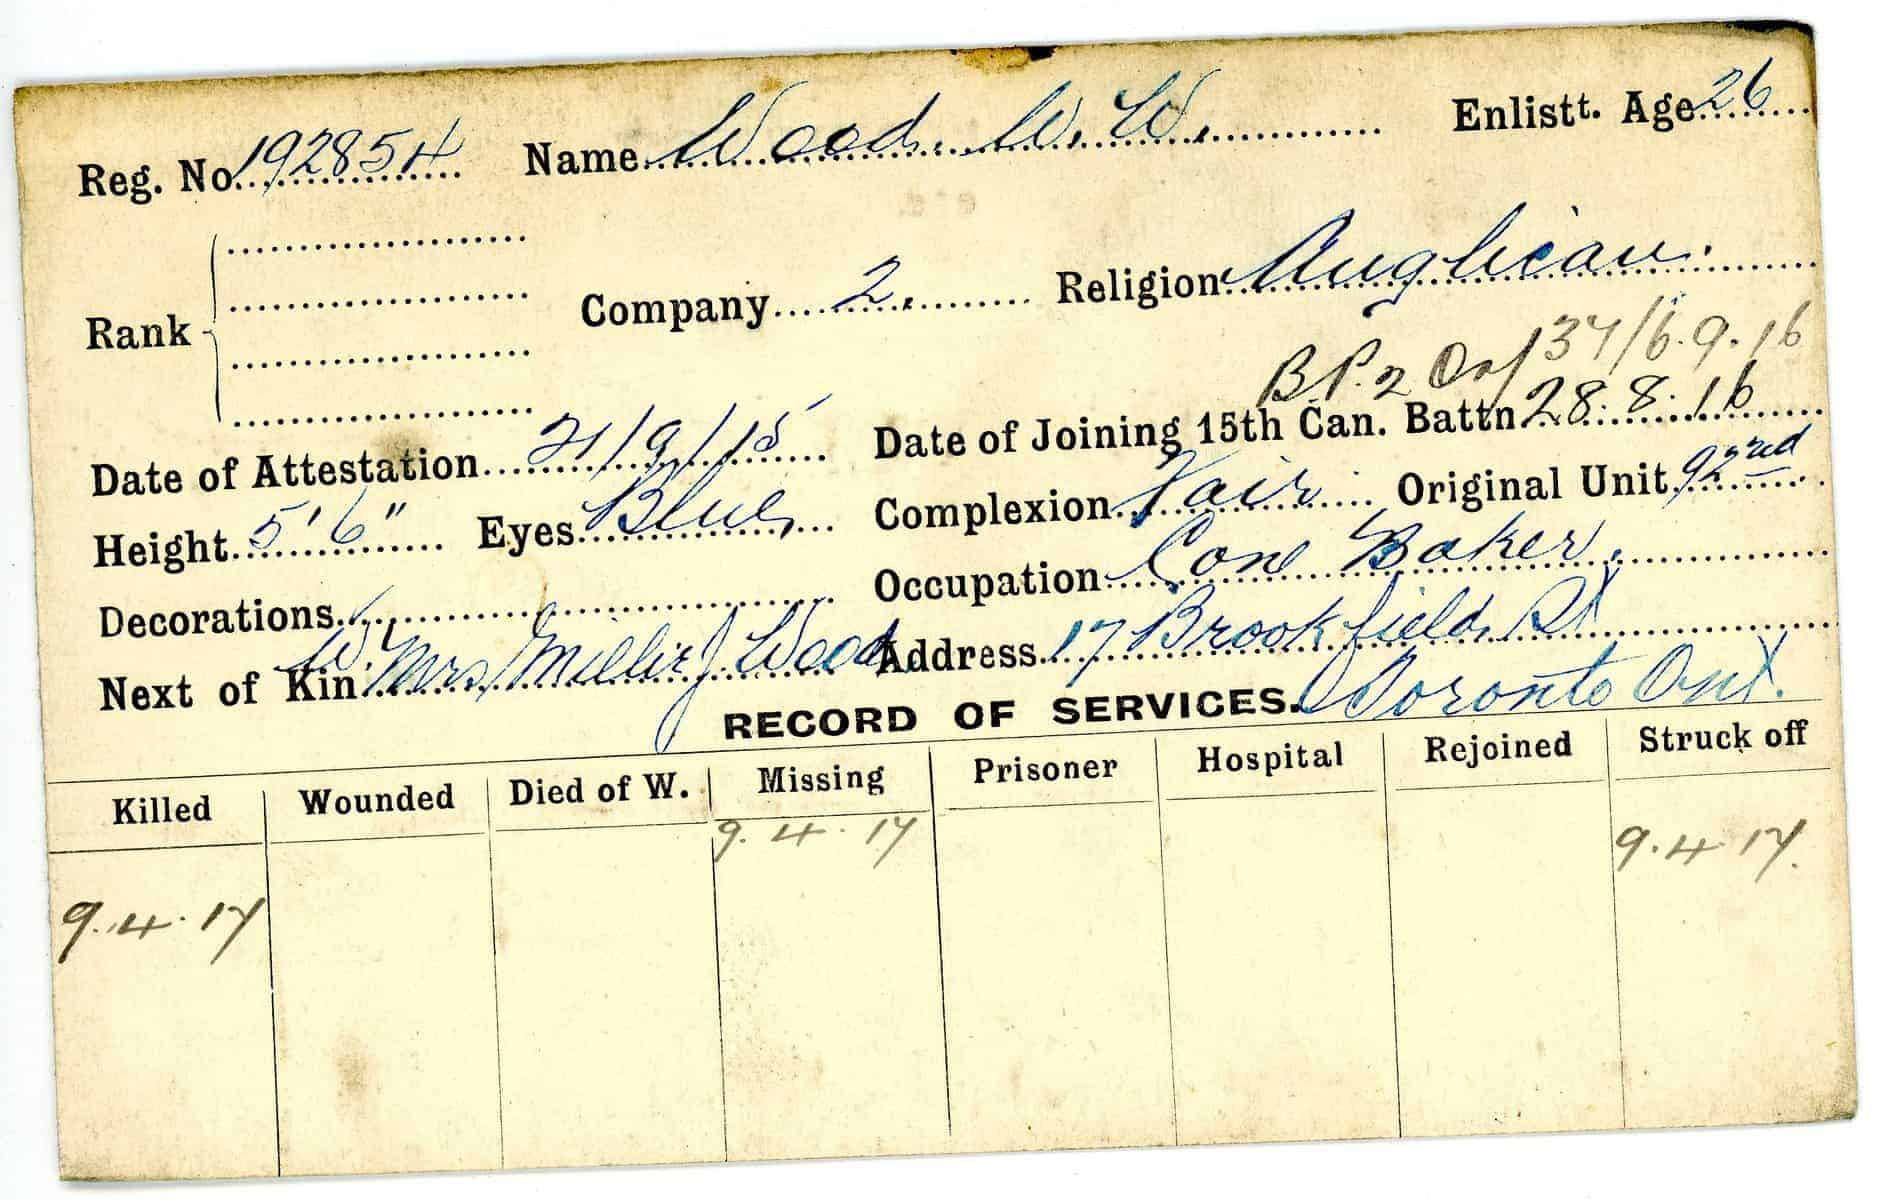 Reg. No. 192854 Name Wood. W. W. Enlistt. Age 26
Rank Company 2. Religion Anglican.
B P. 2 Or/ 37/6.9.16
Date of Attestation 21/9/15 Date of Joining 15th Can. Battn 28.8.16
Height 5' 6" Eyes Blue Complexion Fair Original Unit 92nd
Decorations Occupation Cone Baker.
Next of Kin W. Mrs Millie J Wood Address 17 Brookfield St
Toronto Ont.
RECORD OF SERVICES.
Killed Wounded Died of W. Missing Prisoner Hospital Rejoined Struck off
9.4.17 9.4.17
9.4.17